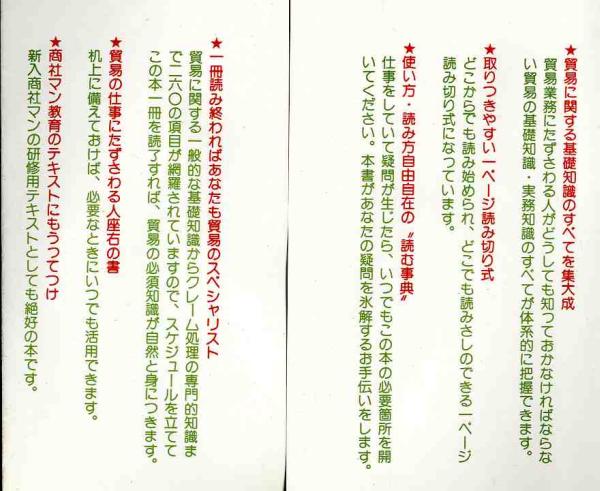 ★貿易に関する基礎知識のすべてを集大成
貿易業務にたずさわる人がどうしても知っておかなければならな
い貿易の基礎知識・実務知識のすべてが体系的に把握できます。
★取りつきやすい一ページ読み切り式
どこからでも読み始められ、どこでも読みさしのできる一ページ
読み切り式になっています。
★使い方・読み方自由自在の〝読む事典〟
仕事をしていて疑問が生じたら、いつでもこの本の必要箇所を開
いてください。本書があなたの疑問を氷解するお手伝いをします。
★一冊読み終わればあなたも貿易のスペシャリスト
貿易に関する一般的な基礎知識からクレーム処理の専門的知識ま
で二六〇の項目が網羅されていますので、スケジュールを立てて
この本一冊を読了すれば、貿易の必須知識が自然と身につきます。
★貿易の仕事にたずさわる人座右の書
机上に備えておけば、必要なときにいつでも活用できます。
★商社マン教育のテキストにもうってつけ
新入商社マンの研修用テキストとしても絶好の本です。